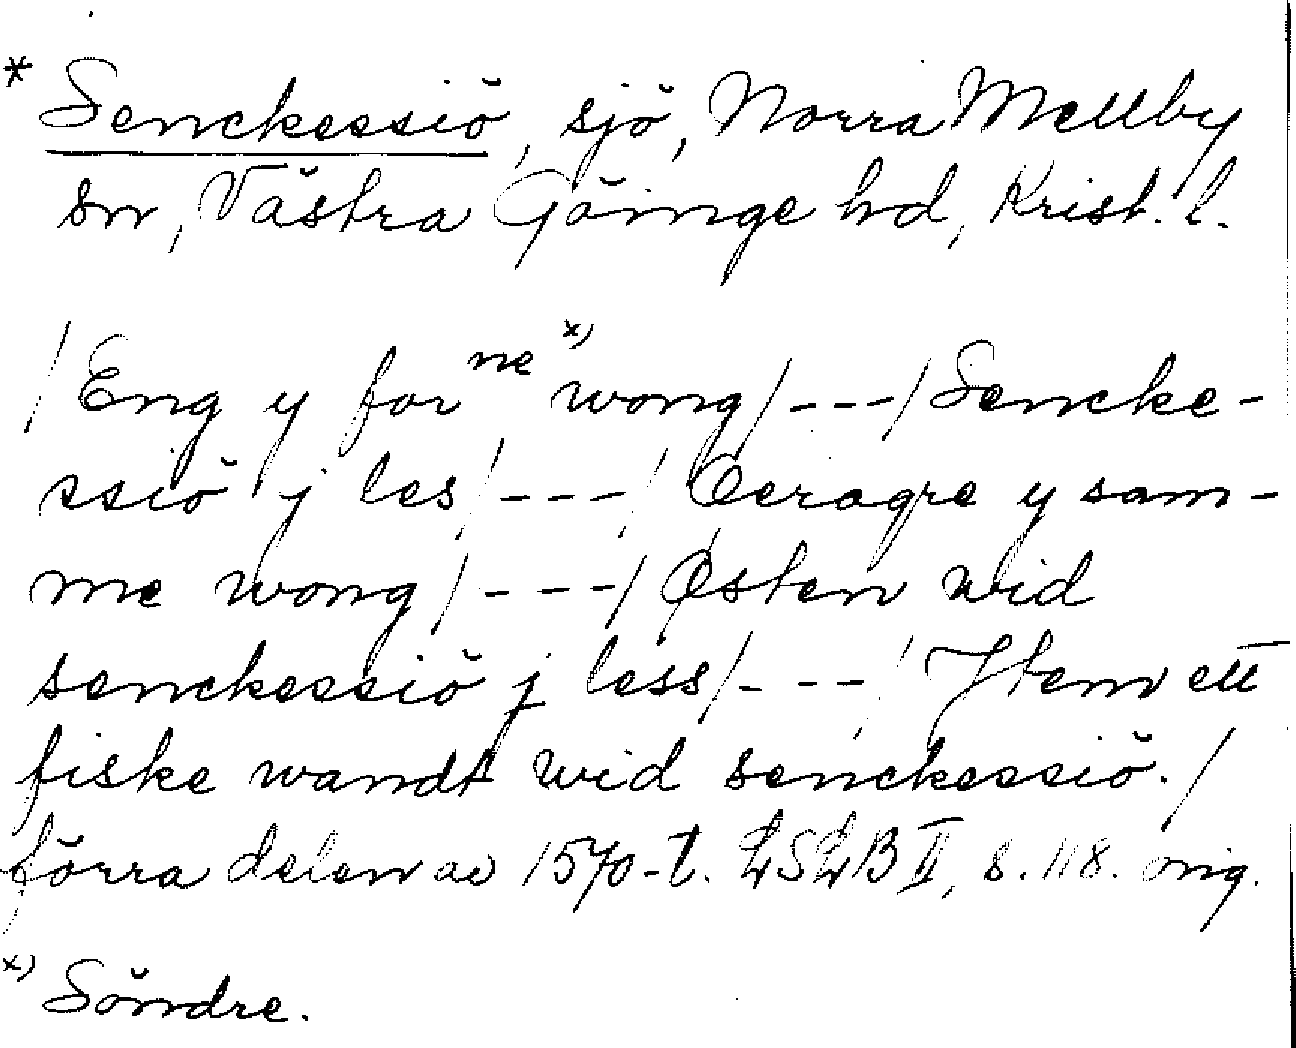 * Senckessiö, sjö, Norra Mellby
sn, Västra Göinge hd, Krist. l.
/Eng y for ne x) wong/---/Sencke-
ssiö j les/---/Øeragre y sam-
me wong/---/Østen wid
senckessiö j less/---/Jtem ett
fiske wandt wid senckessiö./
förra delen av 1570-t. LSLB II, s. 118. orig.
x) Söndre.